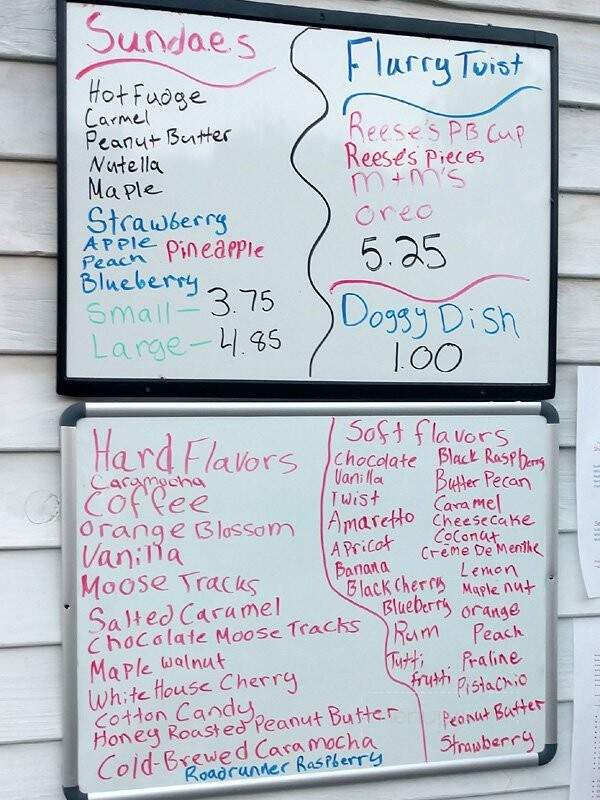 Sundaes
Hot Fudge
Carmel
Peanut Butter
Nutella
Maple
Strawberry
Apple
Peach Pineapple
Blueberry
Small - 3.75
Large - 4.85
Flurry Twist
Reese's PB Cup
Reese's Pieces
m+m's
oreo
5.25
Doggy Dish
1.00
Hard Flavors
Caramocha
Coffee
Orange Blossom
Vanilla
Moose Tracks
Salted Caramel
Chocolate Moose Tracks
Maple Walnut
White House Cherry
Cotton Candy
Honey Roasted Peanut Butter
Cold-Brewed Caramocha
Roadrunner Raspberry
Soft flavors
Chocolate
Vanilla
Twist
Amaretto
Apricot
Banana
Black Cherry
Blueberry
Rum
Tutti
frutti
Black Raspberry
Butter Pecan
Caramel
Cheesecake
Coconut
Créme De Menthe
Lemon
Maple nut
orange
Peach
Praline
Pistachio
Peanut Butter
Strawberry